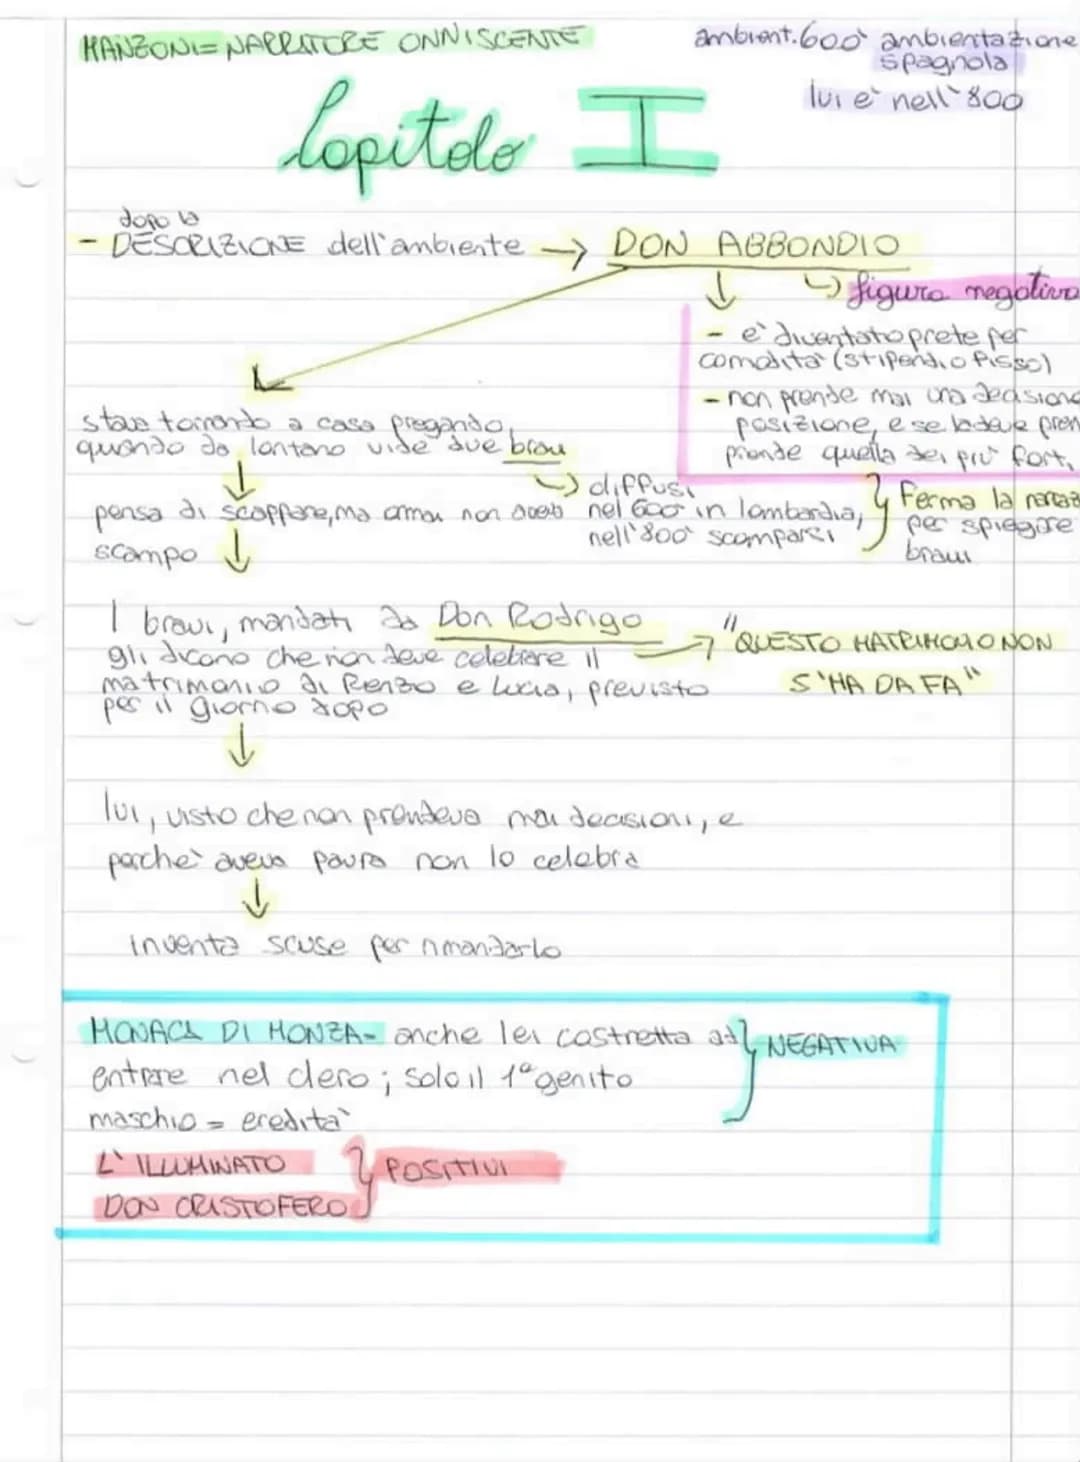 MANZONI= NARRATORE ONNISCENTE
ambient. 600' ambientazione
spagnola
lui e' nell'800
Capitolo I
dopo la
- DESCRIZIONE dell'ambiente → DON ABBONDIO
↳ figura negativa
- e' diventato prete per
comodità (stipendio fisso)
- non prende mai una decisione
posizione, e se la deve pren
prende quella dei più forti
stava tornando a casa pregando,
quando da lontano vide due bravi
↳ diffusi
nel 600 in lombardia,
nell'800 scomparsi
Ferma la narraz
per spiegare
bravi
pensa di scappare, ma ormai non aveva
scampo
I bravi, mandati da Don Rodrigo
gli dicono che non deve celebrare il
matrimonio di Renzo e Lucia, previsto
per il giorno dopo
→ "QUESTO MATRIMONIO NON
S'HA DA FA"
lui, visto che non prendeva mai decisioni, e
perche' aveva paura non lo celebra
inventa scuse per rimandarlo
MONACA DI MONZA- anche lei costretta ad
entrare nel clero; solo il 1° genito
maschio = eredità
} NEGATIVA
L'ILLUMINATO
DON CRISTOFERO
} POSITIVI